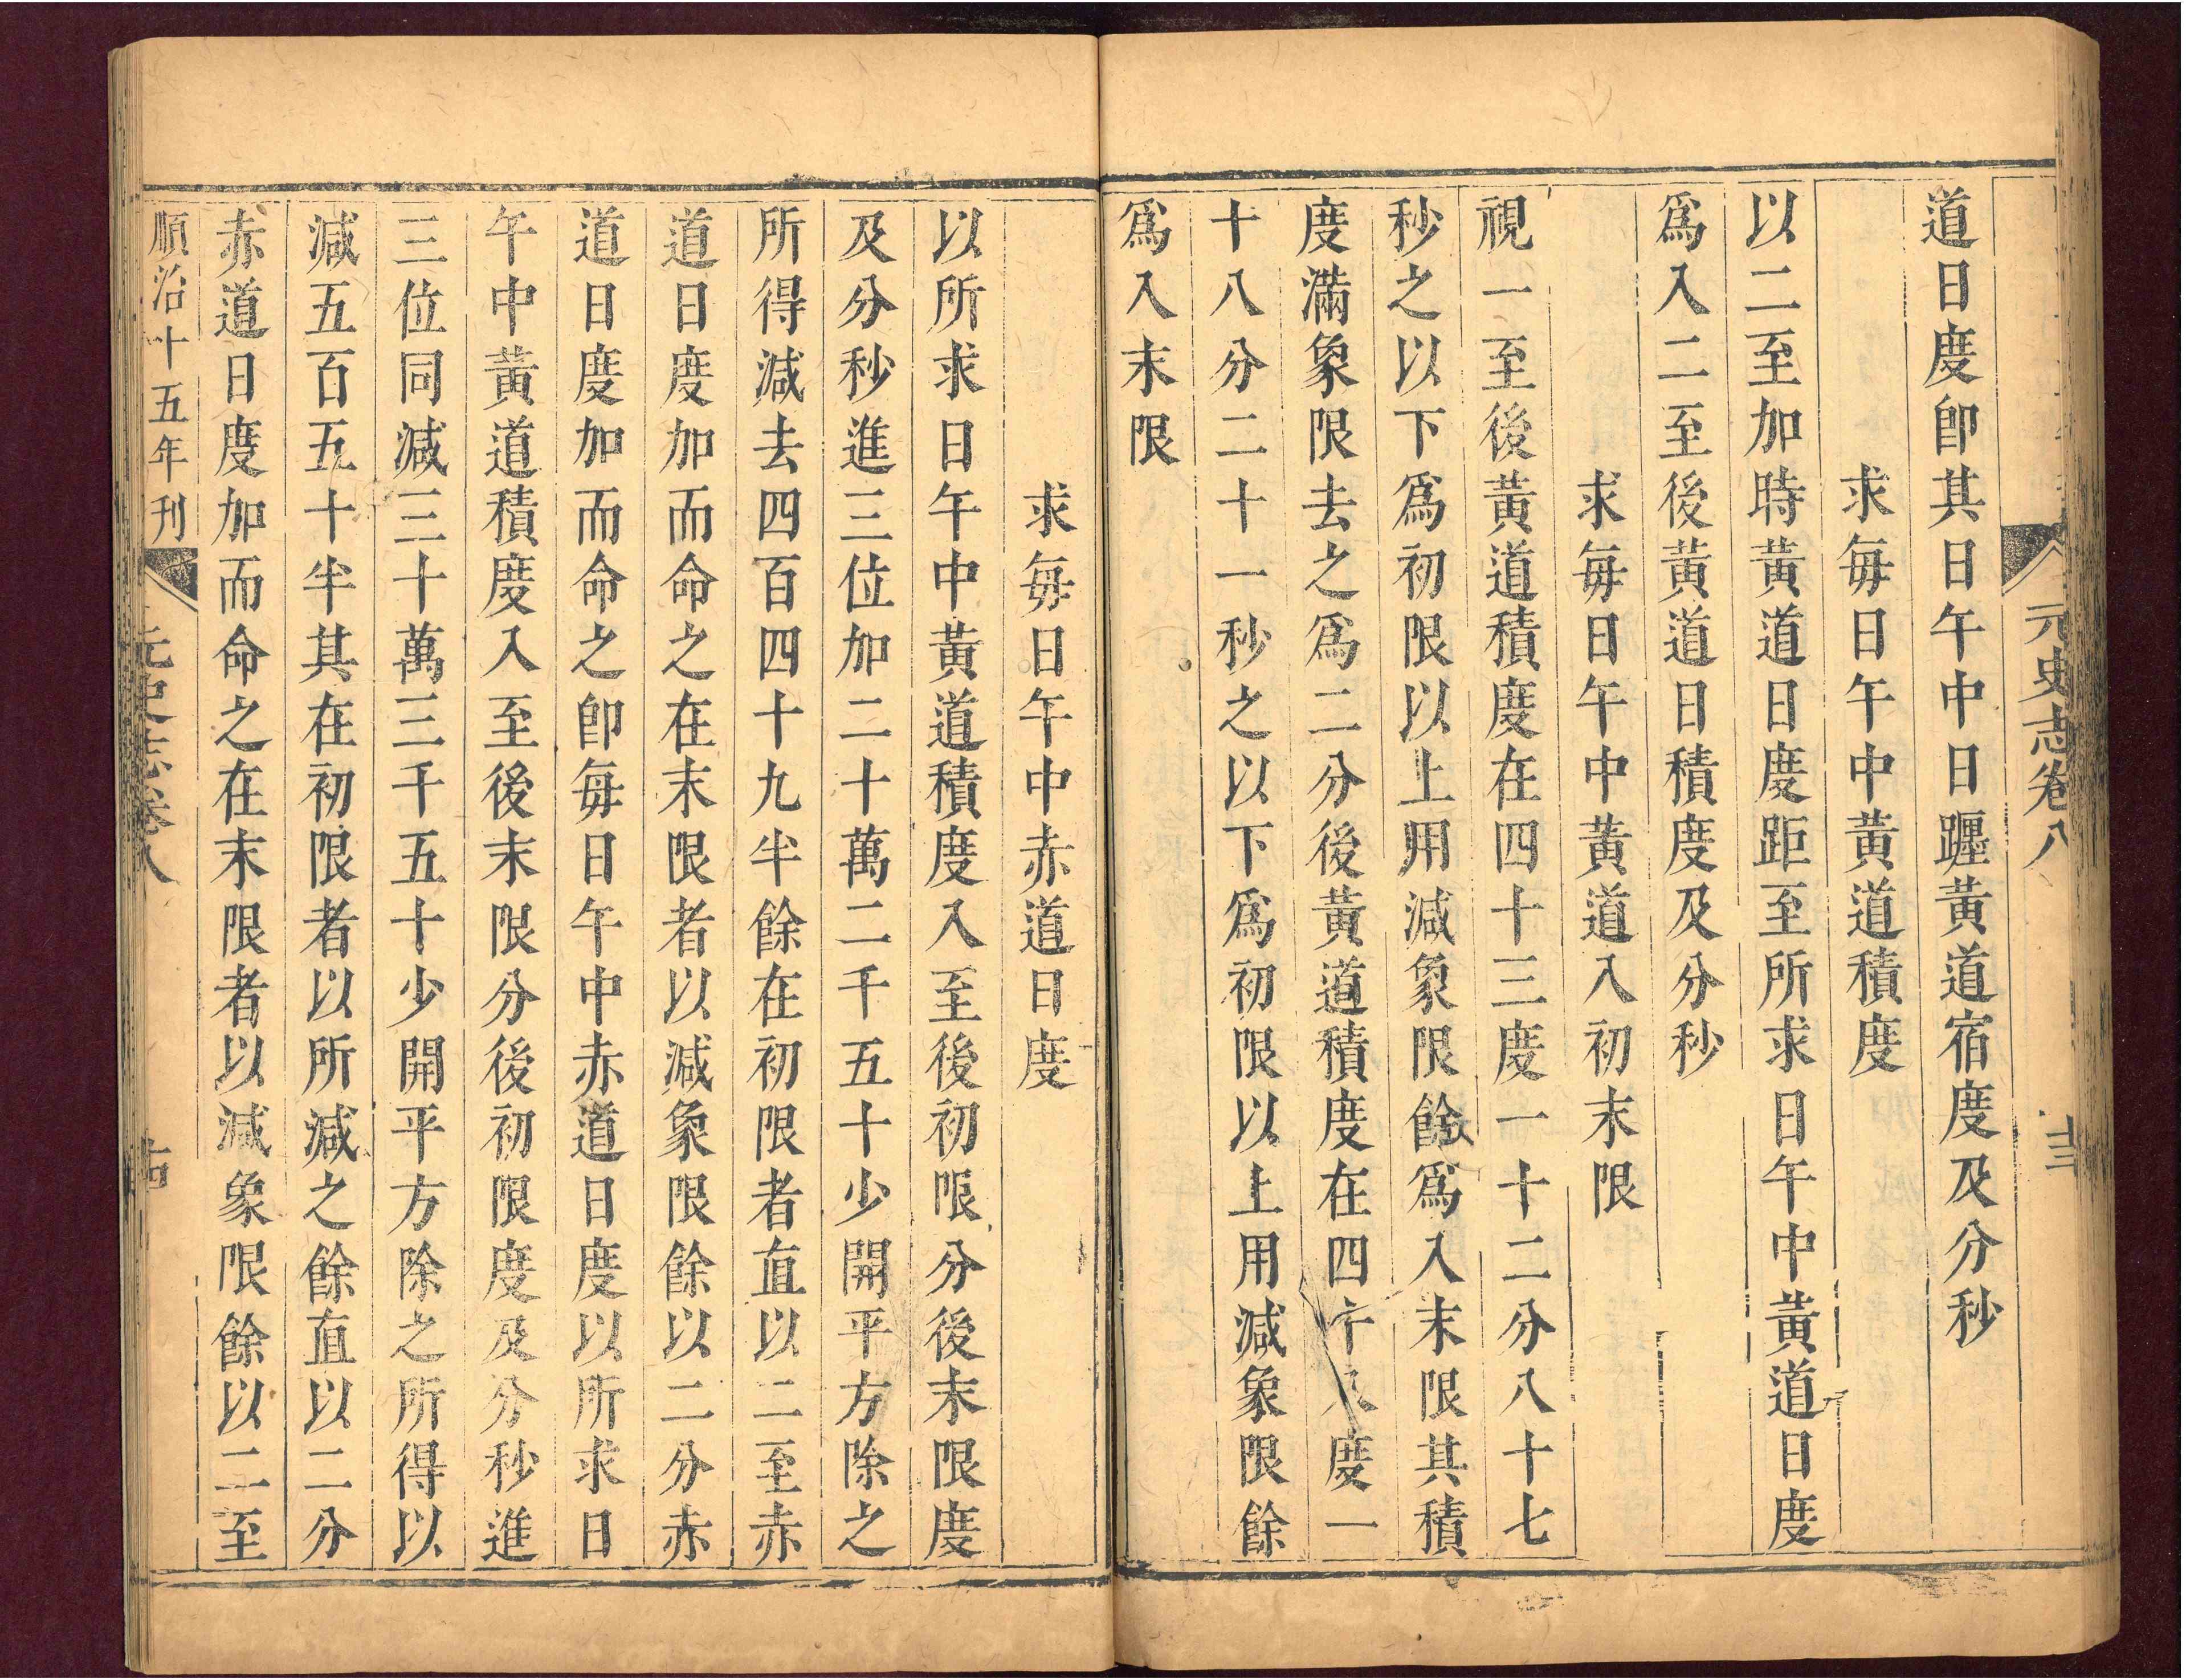 元史志卷八 十三
道日度卽其日午中日躔黃道宿度及分秒
求每日午中黃道積度
以二至加時黃道日度距至所求日午中黃道日度
爲入二至後黃道日積度及分秒
求每日午中黃道入初末限
視一至後黃道積度在四十三度一十二分八十七
秒之以下爲初限以上用減象限餘爲入末限其積
度滿象限去之爲二分後黃道積度在四十八度一
十八分二十一秒之以下爲初限以上用減象限餘
爲入末限
求每日午中赤道日度
以所求日午中黃道積度入至後初限分後末限度
及分秒進三位加二十萬二千五十少開平方除之
所得減去四百四十九半餘在初限者直以二至赤
道日度加而命之在末限者以減象限餘以二分赤
道日度加而命之卽每日午中赤道日度以所求日
午中黃道積度入至後末限分後初限度及分秒進
三位同減三十萬三千五十少開平方除之所得以
減五百五十半其在初限者以所減之餘直以二分
赤道日度加而命之在末限者以減象限餘以二至
順治十五年刊 元史志卷八 十四